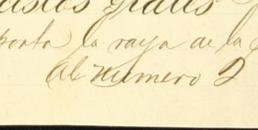 gratis
porta la raya de la
Al numero 2